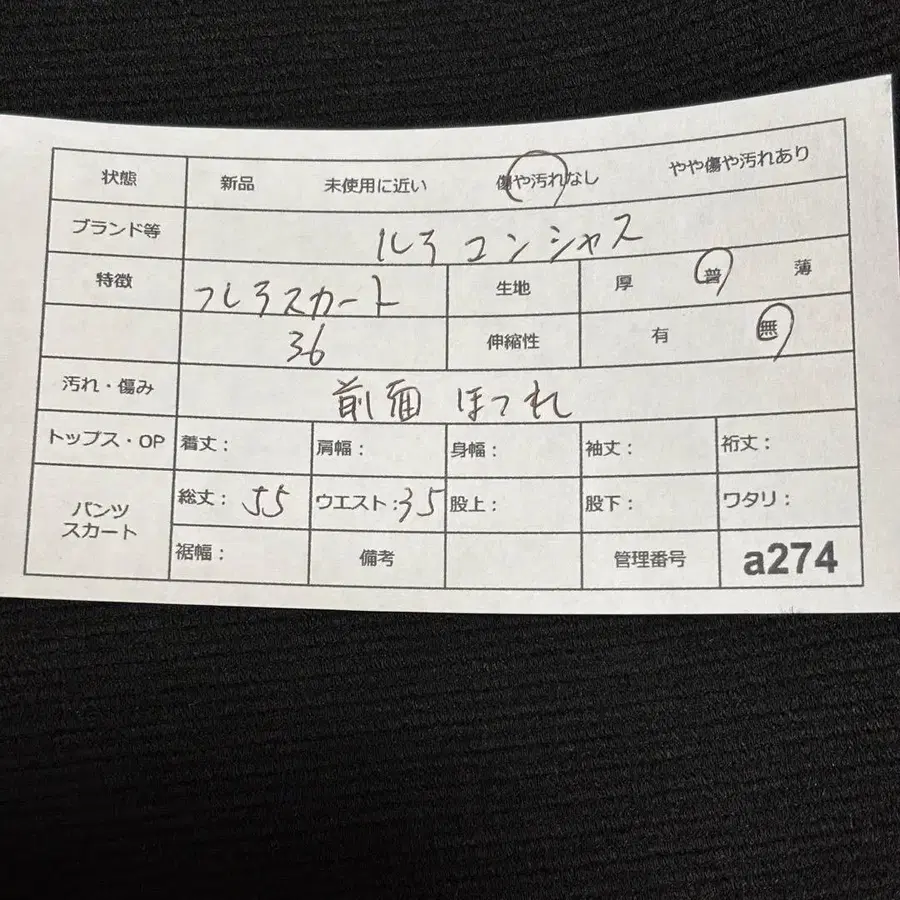 状態 新品 未使用に近い 傷や汚れなし やや傷や汚れあり
ブランド等 ルラ コンシャス
特徴 フレアスカート 生地 厚 普 薄
36 伸縮性 有 無
汚れ・傷み 前面 ほつれ
トップス・OP 着丈: 肩幅: 身幅: 袖丈: 裄丈:
パンツ スカート 総丈: 55 ウエスト:35 股上: 股下: ワタリ:
裾幅: 備考 管理番号 a274